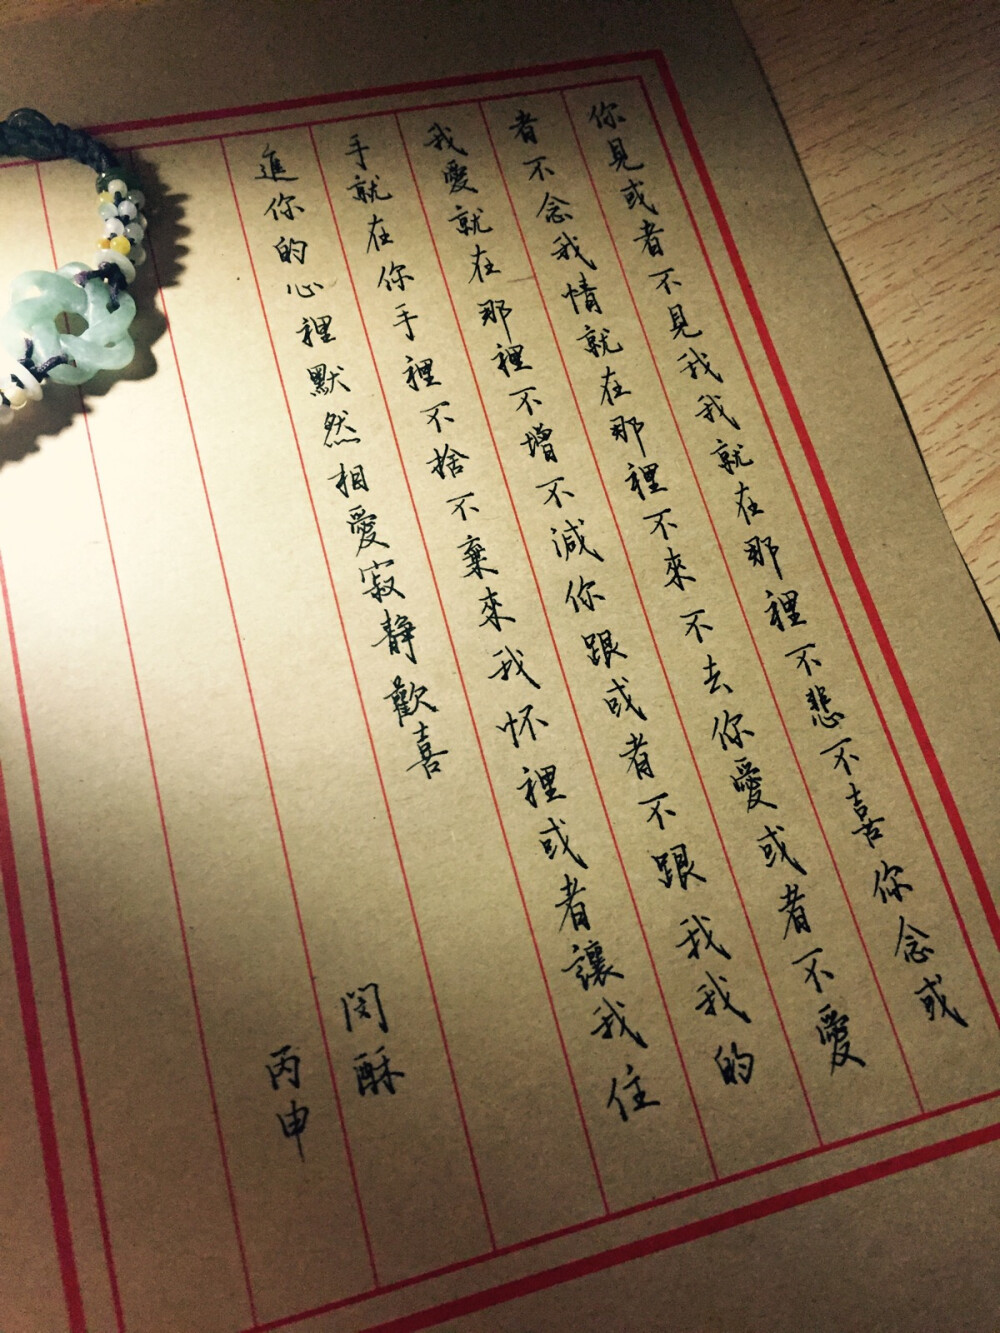 你見或者不見我我就在那裡不悲不喜你念或
者不念我情就在那裡不來不去你愛或者不愛
我愛就在那裡不增不減你跟或者不跟我我的
手就在你手裡不捨不棄來我怀裡或者讓我住
進你的心裡默然相愛寂靜歡喜
閔酥
丙申